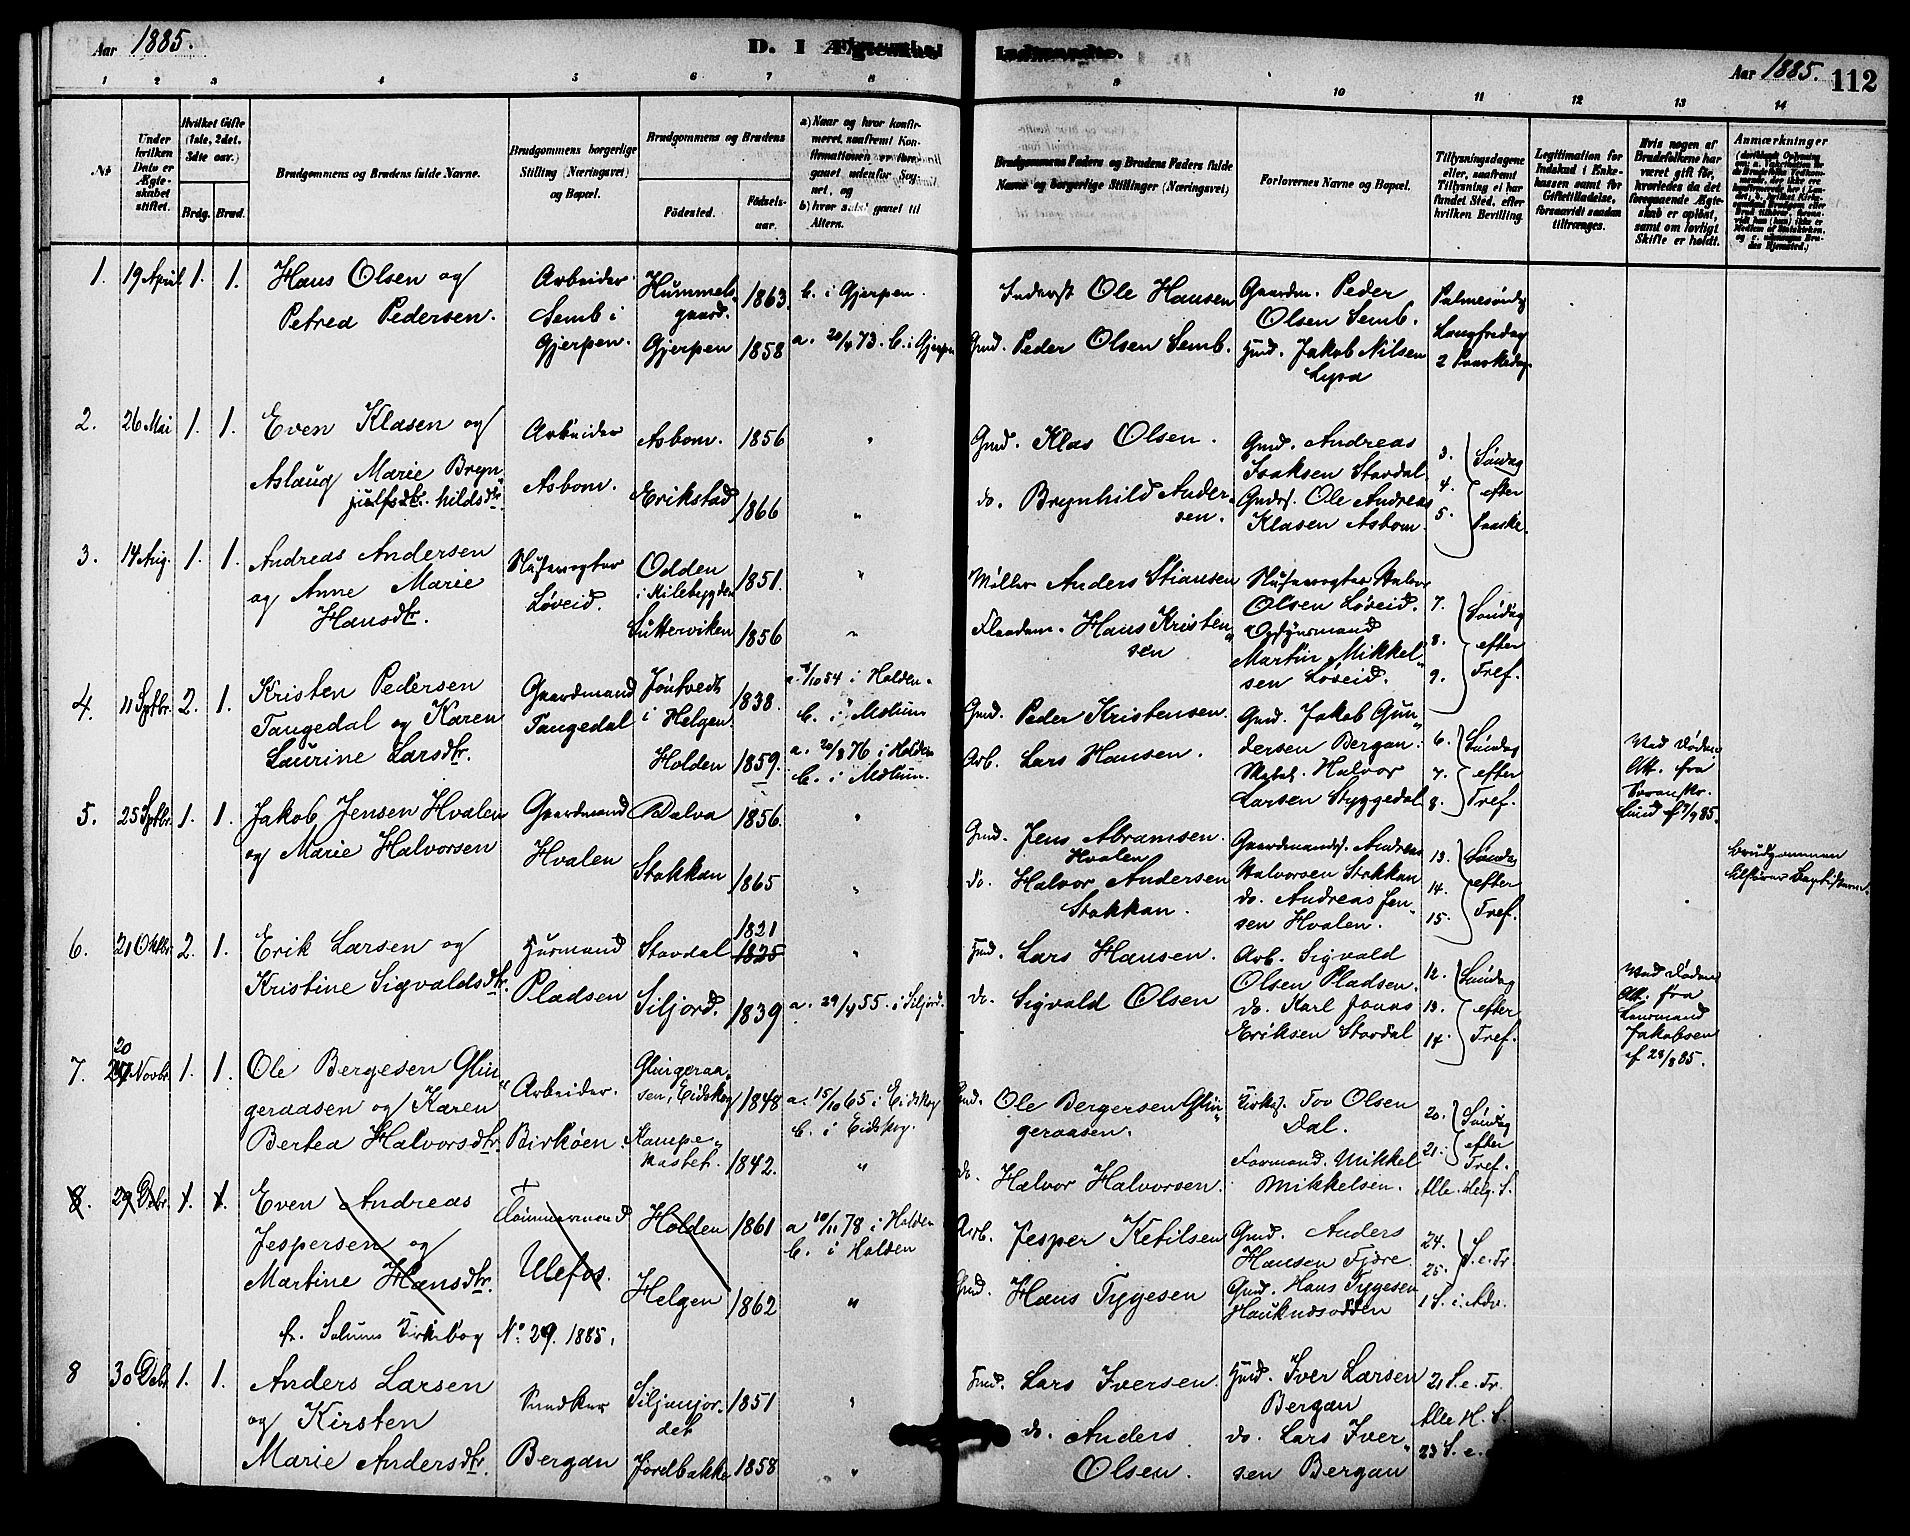 Aar 1885.
D. I Ægteskab
Indtraadte.
Aar 1885. 112
1 2 3 4 5 6 7 8 9 10 11 12 13 14
Nr.
Under hvilken Dato er Ægteskabet stiftet.
Hvilket Gifte (1ste, 2det, 3die osv.)
Brdg. Brud.
Brudgommens og Brudens fulde Navne.
Brudgommens borgerlige Stilling (Næringsvei) og Bopæl.
Brudgommens og Brudens
Fødested. Fødselsaar.
a) Naar og hvor konfirmeret, saafremt Konfirmationen er foregaaet udenfor Sognet, og
b) hvor sidst gaaet til Alters.
Brudgommens Faders og Brudens Faders fulde Navne og borgerlige Stillinger (Næringsvei)
Forlovernes Navne og Bopæl.
Tillysningsdagene eller, saafremt Tillysning ei har fundet Sted, efter hvilken Bevilling.
Legitimation for Indskud i Enkekassen samt for Giftetilladelse, forsaavidt saadan tiltrænges.
Hvis nogen af Brudefolkene har været gift før, hvorledes da det foregaaende Ægteskab er opløst, samt om lovligt Skifte er holdt.
Anmærkninger
1. 19 April 1. 1. Hans Olsen og
Petrea Pedersen.
Arbeider
Semb i
Gjerpen.
Hummels-
gaard. 1863. b. i Gjerpen.
Gjerpen 1858 a. 20/4 73. b. i Gjerpen
Inderst Ole Hansen
Gmd. Peder Olsen Semb.
Gaardm. Peder
Olsen Semb.
Hmd. Jakob Nilsen
Lysa
Palmesøndg
Langfredag
2 Paaskedag.
2. 26 Mai 1. 1. Even Klasen og
Aslaug Marie Bryn"
julfsdtr. hildsdtr.
Arbeider
Asbom.
Asbom. 1856 "
Erikstad 1866 "
Gmd. Klas Olsen.
do. Brynhild Ander-
sen.
Gmd. Andreas
Isaksen Stordal
Gmds. Ole Andreas
Klasen Asbom.
3. 4. 5. Søndag efter Paaske.
3. 14 Aug. 1. 1. Andreas Andersen
og Anne Marie
Hansdtr.
Slusevogter
Løveid.
Odden
i Milebygden 1851. "
Sutterviken 1856 "
Møller Anders Stiansen
Flaadem. Hans Kristen"
sen
Slusevogter Halvor
Olsen Løveid.
Opsynsmand
Martin Mikkel"
sen Løveid.
7. 8. 9. Søndag efter Tref.
4. 11 Septbr. 2. 1. Kristen Pedersen
Tangedal og Karen
Laurine Larsdtr.
Gaardmand
Tangedal
Jøntvedt
i Helgen. 1838. a. /10 54 i Holden.
b. i Mælum
Holden 1859. a. 20/8 76 i Holden
b. i Mælum.
Gmd. Peder Kristensen.
Arb. Lars Hansen.
Gmd. Jakob Gun"
dersen Bergan.
Halvor
Larsen Styggedal
6. 7. 8. Søndag efter Tref.
Ved Døden
Att. fra
Lund af 7/9 85.
5. 25 Septbr. 1. 1. Jakob Jensen Hvalen
og Marie Halvorsen
Gaardmand
Hvalen
Dalva 1856. "
Stokkan 1865 "
Gmd. Jens Abramsen.
Hvalen
do. Halvor Andersen
Stokkan.
Gaardmands. Andreas
Halvorsen Stokkan
do. Andreas Jen"
sen Hvalen.
13. 14. 15. Søndag efter Tref.
Brudgommen
tilhører Baptisterne.
6. 21 Oktbr. 2. 1. Erik Larsen og
Kristine Sigvaldsdtr.
Husmand
Pladsen
Stordal 1821 1825 "
Siljord. 1839 a. 29/4 55. i Siljord.
Hmd. Lars Hansen.
do. Sigvald Olsen
Arb. Sigvald
Olsen Pladsen.
do. Karl Jonas
Eriksen Stordal
12. 13. 14. Søndag efter Tref.
Ved Døden
Att. fra
Lensmand
Jakobsen
af 28/8 85.
7. 20 Novbr. 1. 1. Ole Bergesen Glin"
geraasen og Karen
Bertea Halvorsdtr.
Arbeider.
Birkøen.
Glingeraa-
sen, Eidskog 1848 a. 15/10 65 i Eidskog
b. i Eidskog.
Kampe-
kastet. 1842. "
Gmd. Ole Bergersen Glin"
geraasen.
do. Halvor Halvorsen.
Kirkes. Tov Olsen
Dal.
Formand. Mikkel
Mikkelsen.
20. 21. Søndag efter Tref.
Alle Helg. S.
8. 29 Debr. 1. 1. Even Andreas
Jespersen og
Martine Hansdtr.
Tømmermand
Ulefos.
Holden 1861 a 10/11 78 i Holden
b. i Holden
Helgen 1862 "
Arb. Jesper Ketilsen
Gmd. Hans Tygesen
Gmd. Anders
Hansen Fjære.
Gmd. Hans Tygesen
Hauknesodden
24. 25. S. e. Tr.
1 S. i Adv.
fr. Solums Kirkebog No. 29. 1885.
8 30 Debr 1. 1. Anders Larsen
og Kirsten
Marie Andersdtr.
Snedker
Bergan
Siljanjor-
det 1851 "
Jordbakke 1858 "
Hmd. Lars Iversen.
do. Anders
Olsen.
Hmd. Iver Larsen
Bergan
do. Lars Iver"
sen Bergan
21 S. e. Tr.
Alle H. S.
23 S. e.